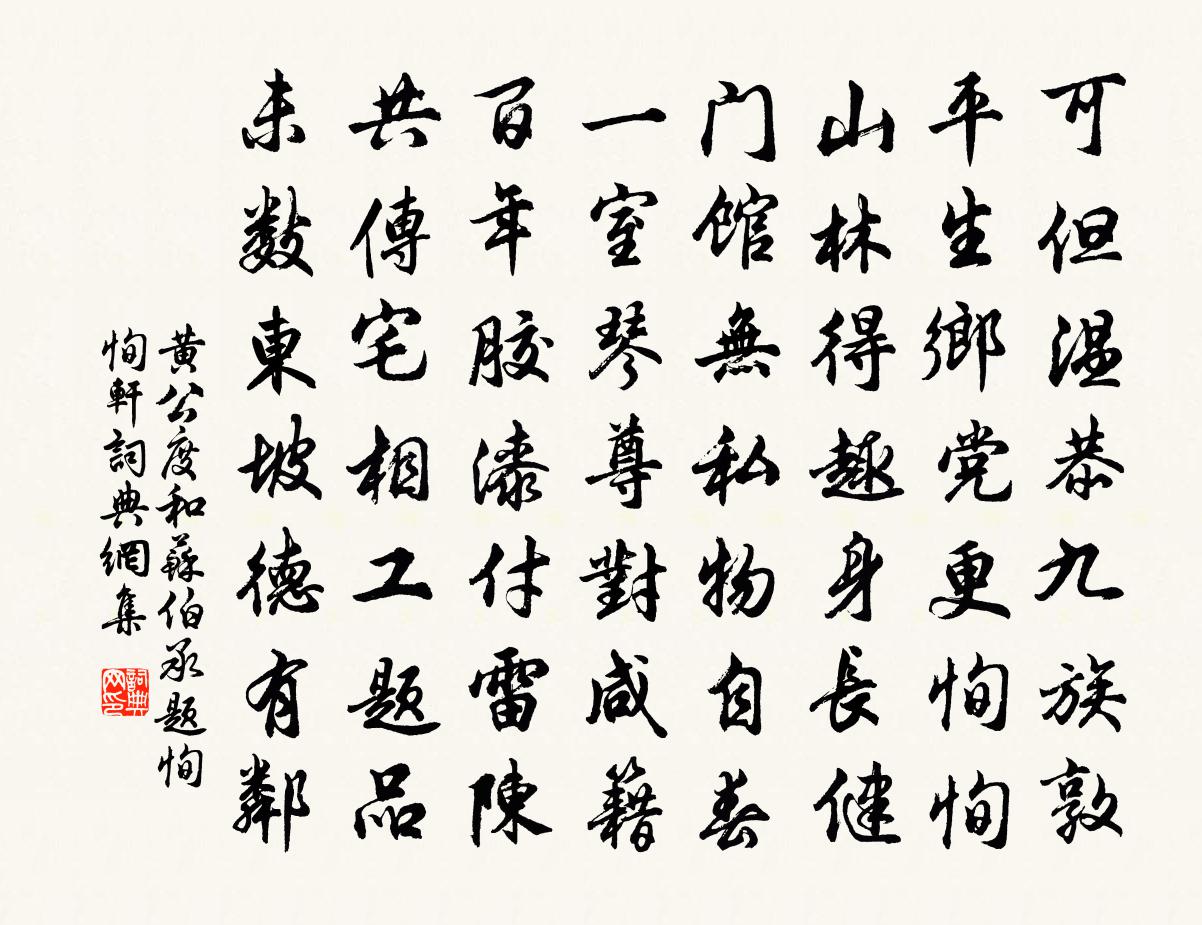 可但温恭九族敦
平生鄉党更恂恂
山林得趣身長健
门馆無私物自春
一室琴尊對咸籍
百年胶漆付雷陳
共傳宅相工题品
未数東坡德有鄰
黄公度和蘇伯承题恂
恂軒詞典網集
詞典
网印